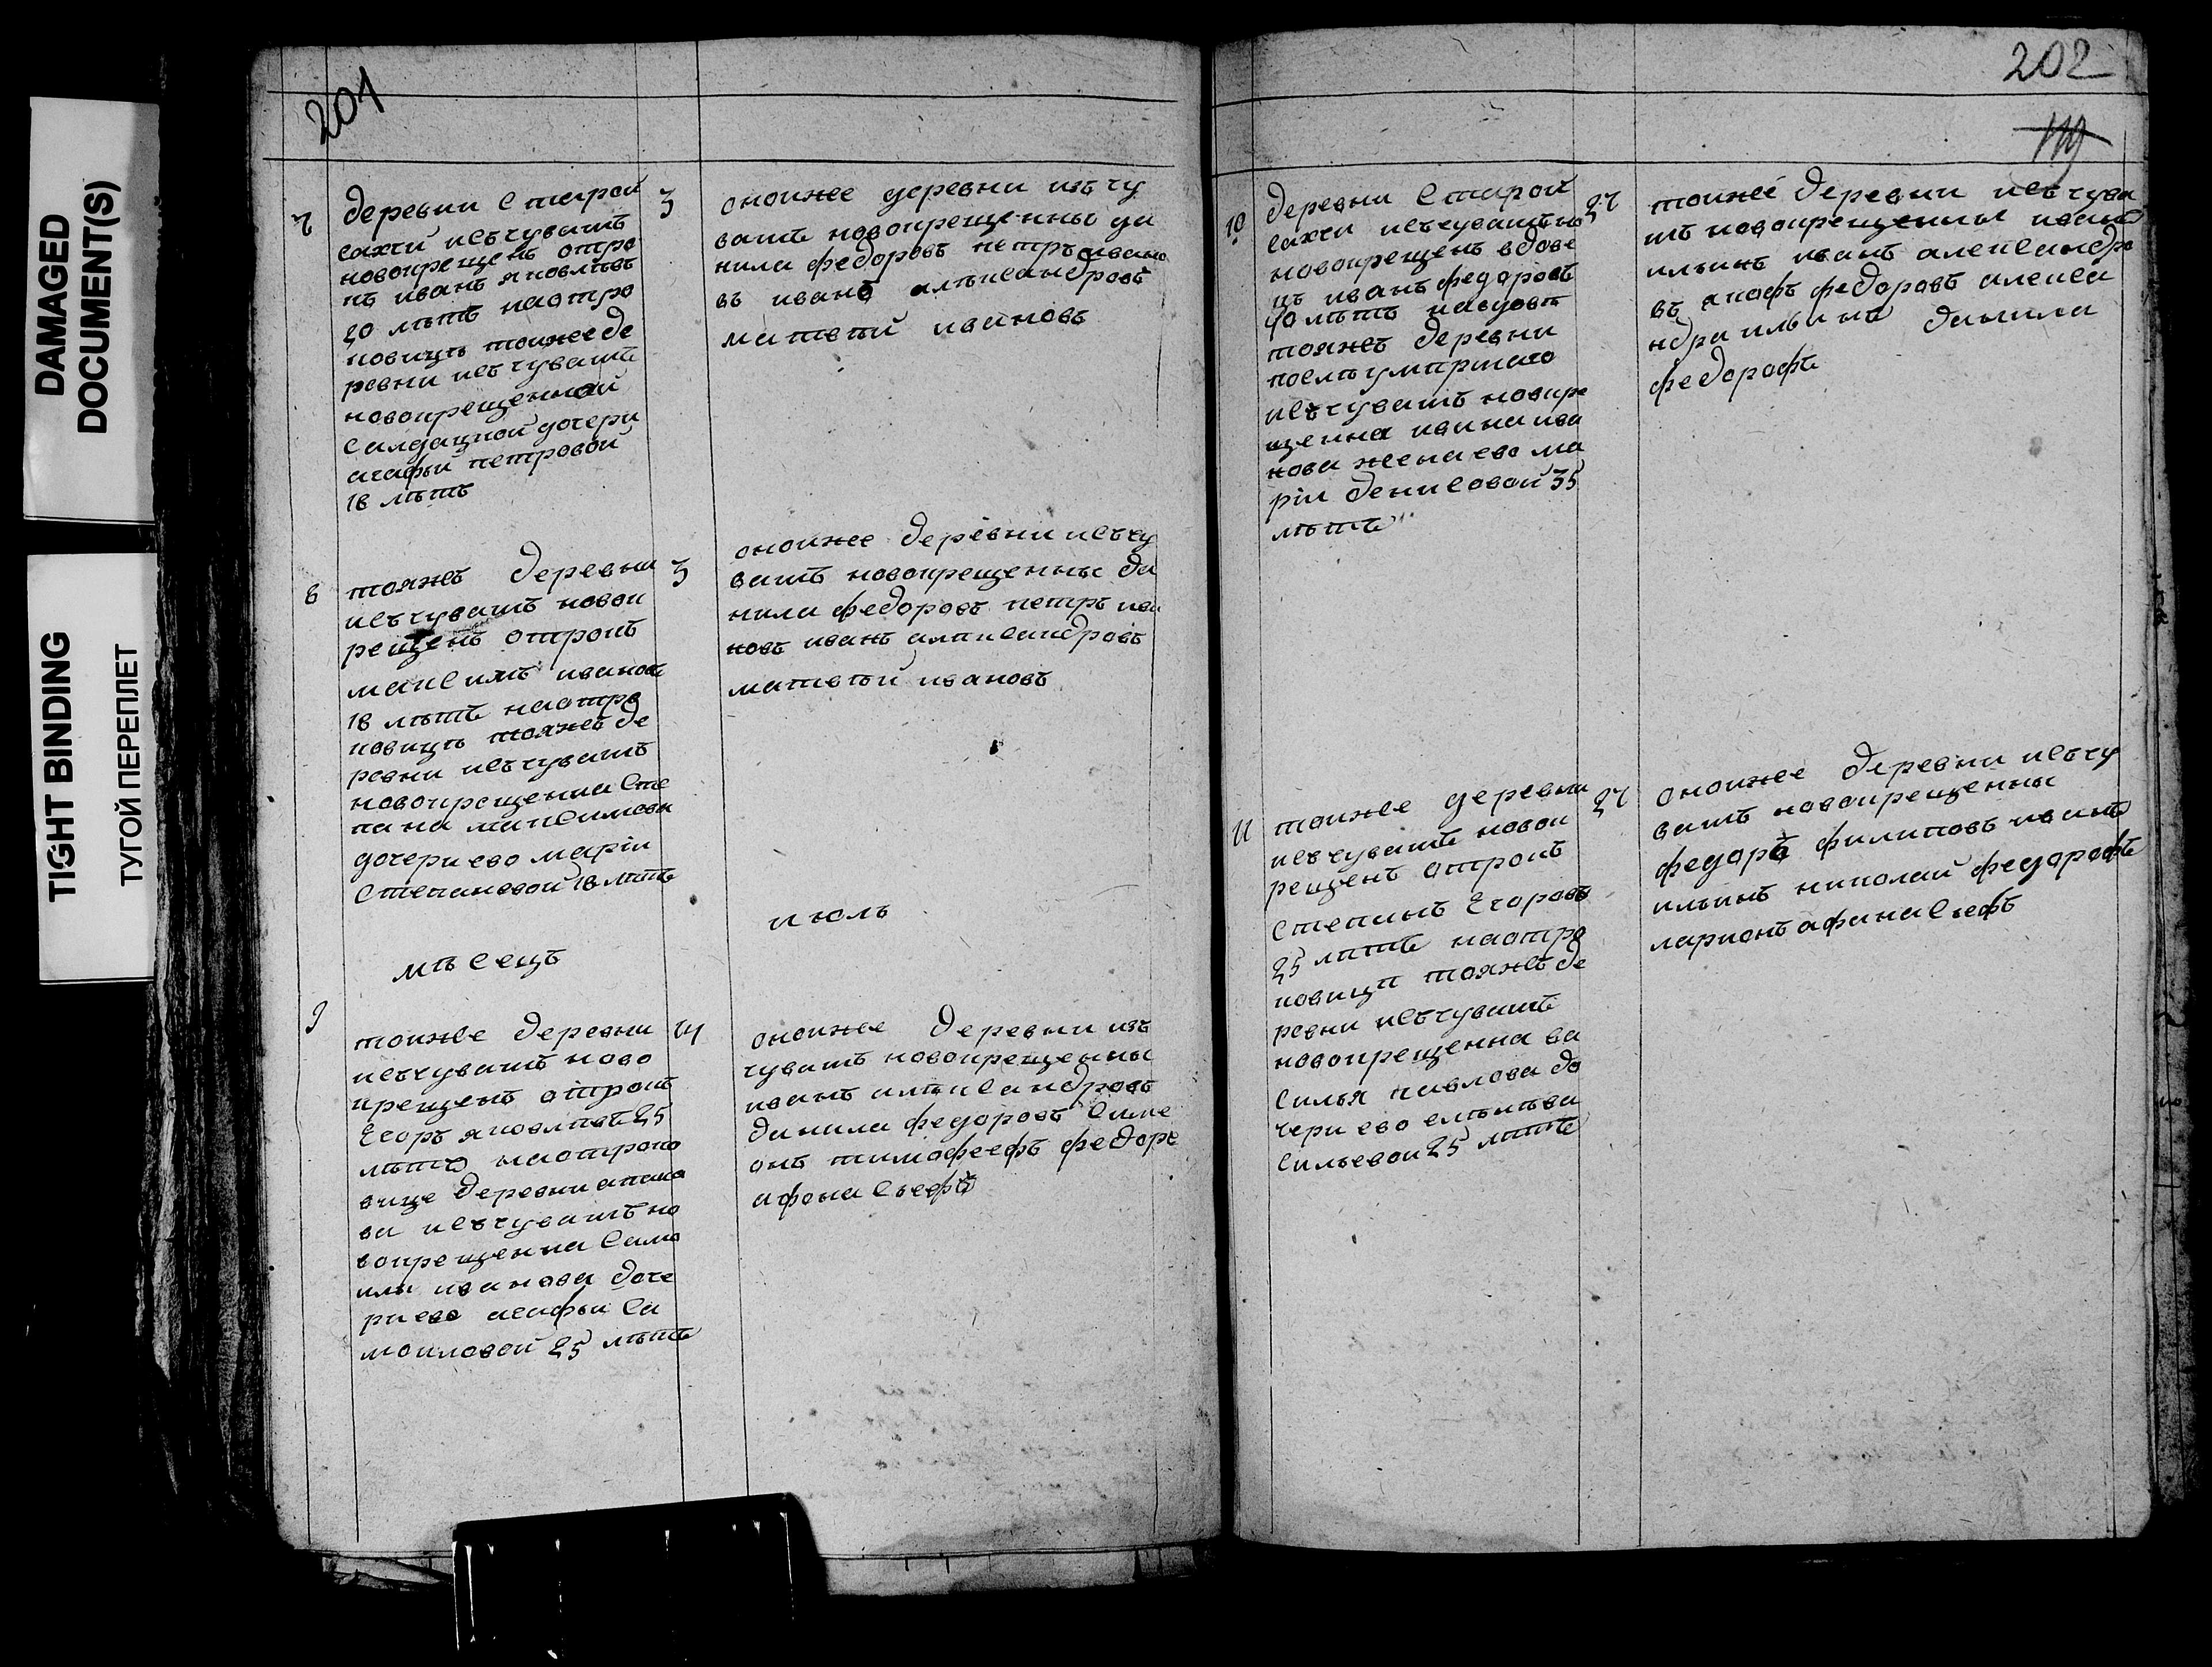 DAMAGED
DOCUMENT(S)
TIGHT BINDING
ТУГОЙ ПЕРЕПЛЕТ
201
7
деревни старой
сахчи исъчувашъ
новокрещенъ отро
къ иванъ яковлѣвъ
20 лѣтъ наотро
ковицѣ тоижеде
ревни исъ чувашъ
новокрещенной
салдацкой дочери
агафьи петровой
18 лѣтъ
3
оноижее деревни изъ чу
вашъ новокрещенны да
нила федоровъ петръ ивано
въ иванъ алѣксандровъ
матвѣй ивановъ
8
тояжъ деревни
исъчувашъ новок
рещенъ отрокъ
максимъ ивановъ
18 лѣтъ наотро
ковицѣ тояжъ де
ревни исъчувашъ
новокрещенна сте
пана максимова
дочери ево маріи
степановой 18 лѣтъ
3
оноижее деревни исъчу
вашъ новокрещенны да
нила федоровъ петръ ива
новъ иванъ алѣксандровъ
матвѣй ивановъ
мѣсецъ
июль
9
тоижее деревни
исъчувашъ ново
крещенъ отрокъ
Егоръ яковлѣвъ 25
лѣтъ наотроко
вице деревни
ва исъчувашъ но
вокрещенна само
ила иванова доче
ри ево агафьи са
моиловой 25 лѣтъ
4
оноижее деревни изъ
чувашъ новокрещенны
иванъ алѣксандровъ
данила федоровъ симе
онъ тимофеефъ федоръ
афонасьефъ
202
119
10
деревни старой
сахчи исъчувашъ но
новокрещенъ вдове
цъ иванъ федоровъ
40 лѣтъ навдовѣ
тояжъ деревни
послѣ умпршаго
исъчувашъ новкре
щенна ивана ива
нова жена ево ма
ріи денисовой 35
лѣтъ
27
тоижеё деревни исъ чува
шъ новокрещенны иванъ
ильинъ иванъ александро
въ якофъ федоровъ алекса
ндра ильинъ данила
федорофъ
11
тоижее деревни
исъчувашъ новок
рещенъ отрокъ
степанъ Егоровъ
25 лѣтъ наотро
ковицѣ тояжъ де
ревни исъчувашъ
новокрещенна ва
силья павлова до
чери ево
сильевои 25 лѣтъ
27
оноижее деревни исъчу
вашъ новокрещенны
федоръ филиповъ иванъ
ильинъ николай федорофъ
ларионъ афанасьефъ